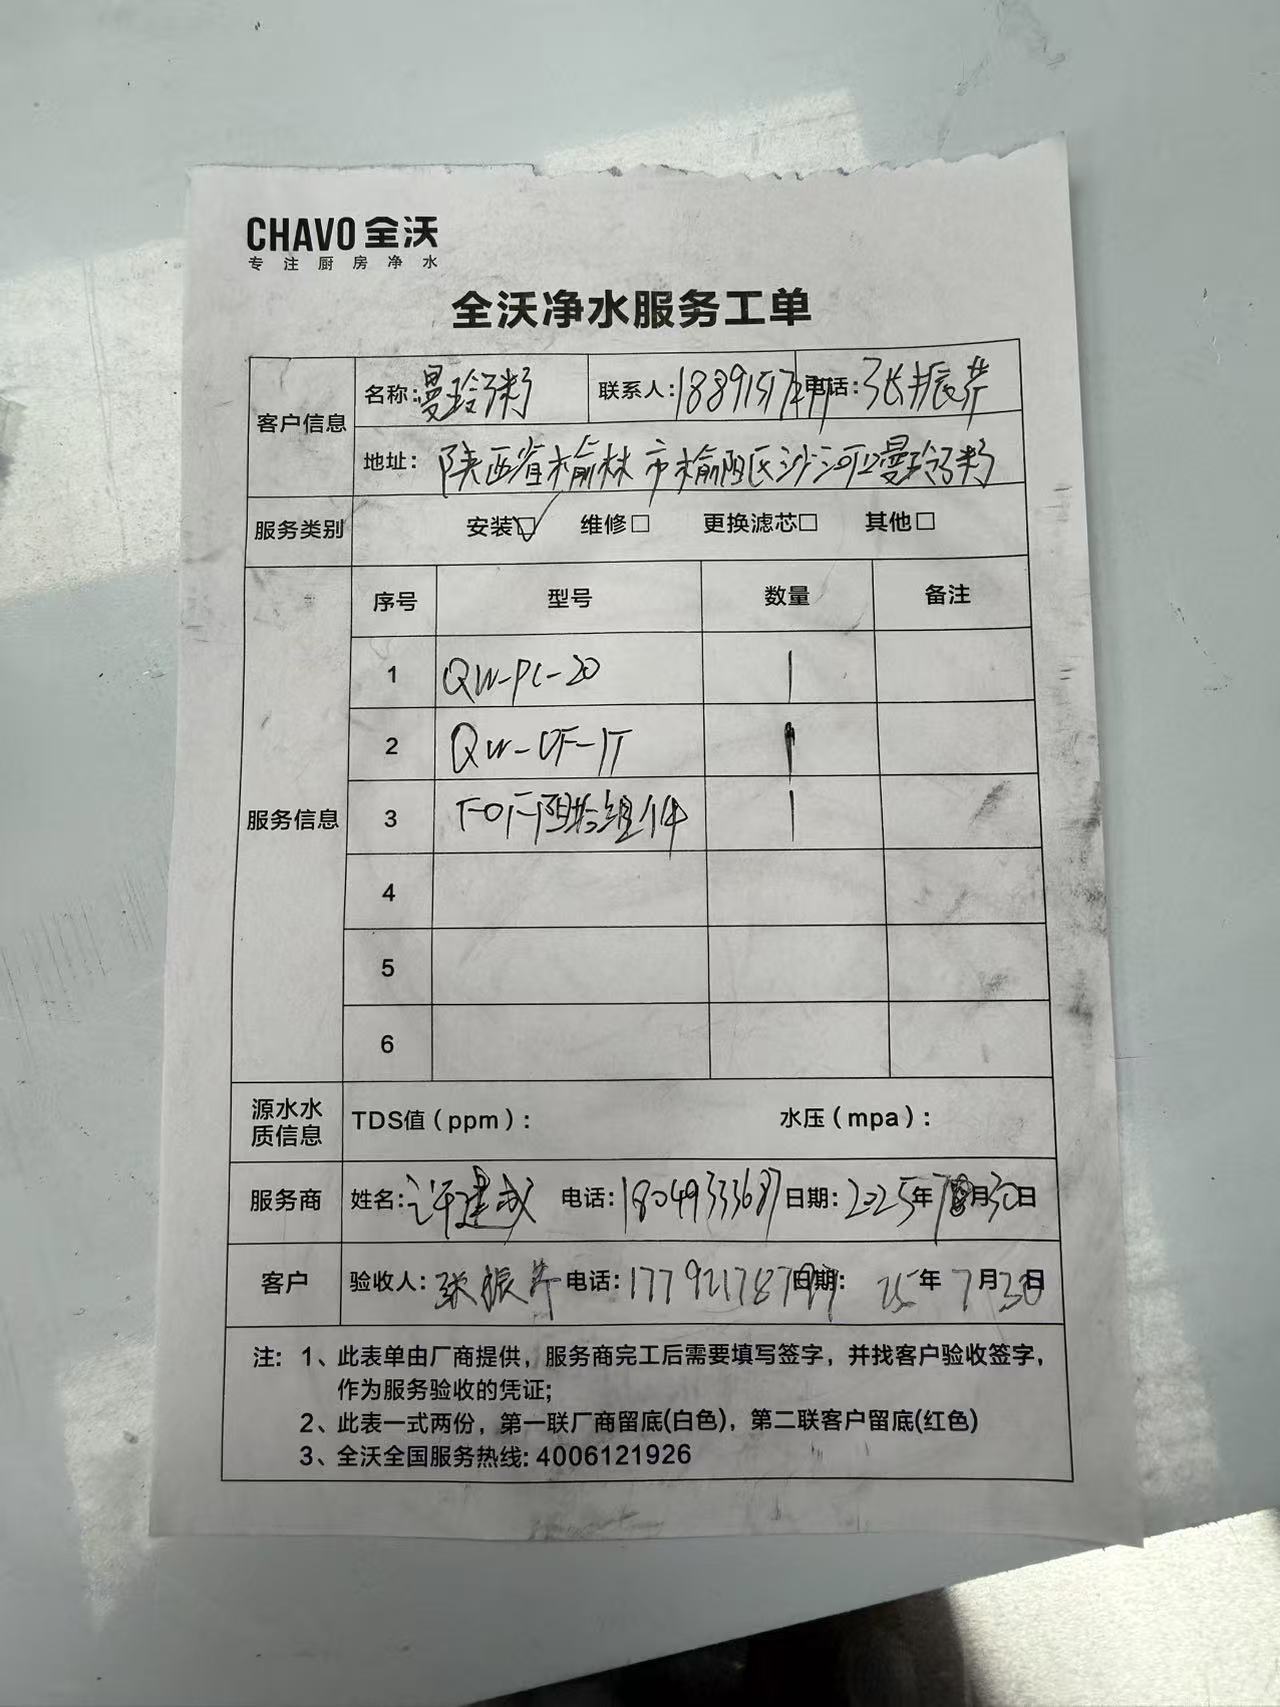 CHAVO 全沃
专注厨房净水
全沃净水服务工单
客户信息 名称:曼玲粥 联系人:188915172 电话:张振芹
地址: 陕西省榆林市榆阳区沙河口曼玲粥
服务类别 安装☑ 维修□ 更换滤芯□ 其他□
服务信息
序号 型号 数量 备注
1 QW-PC-20 1
2 QW-UF-1T 1
3 阻垢组件 1
4
5
6
源水水质信息 TDS值(ppm): 水压(mpa):
服务商 姓名:许建成 电话:18049333687 日期:2025年7月30日
客户 验收人:张振芹 电话:177921787 日期: 25年7月30日
注: 1、此表单由厂商提供，服务商完工后需要填写签字，并找客户验收签字，
作为服务验收的凭证;
2、此表一式两份，第一联厂商留底(白色)，第二联客户留底(红色)
3、全沃全国服务热线: 4006121926